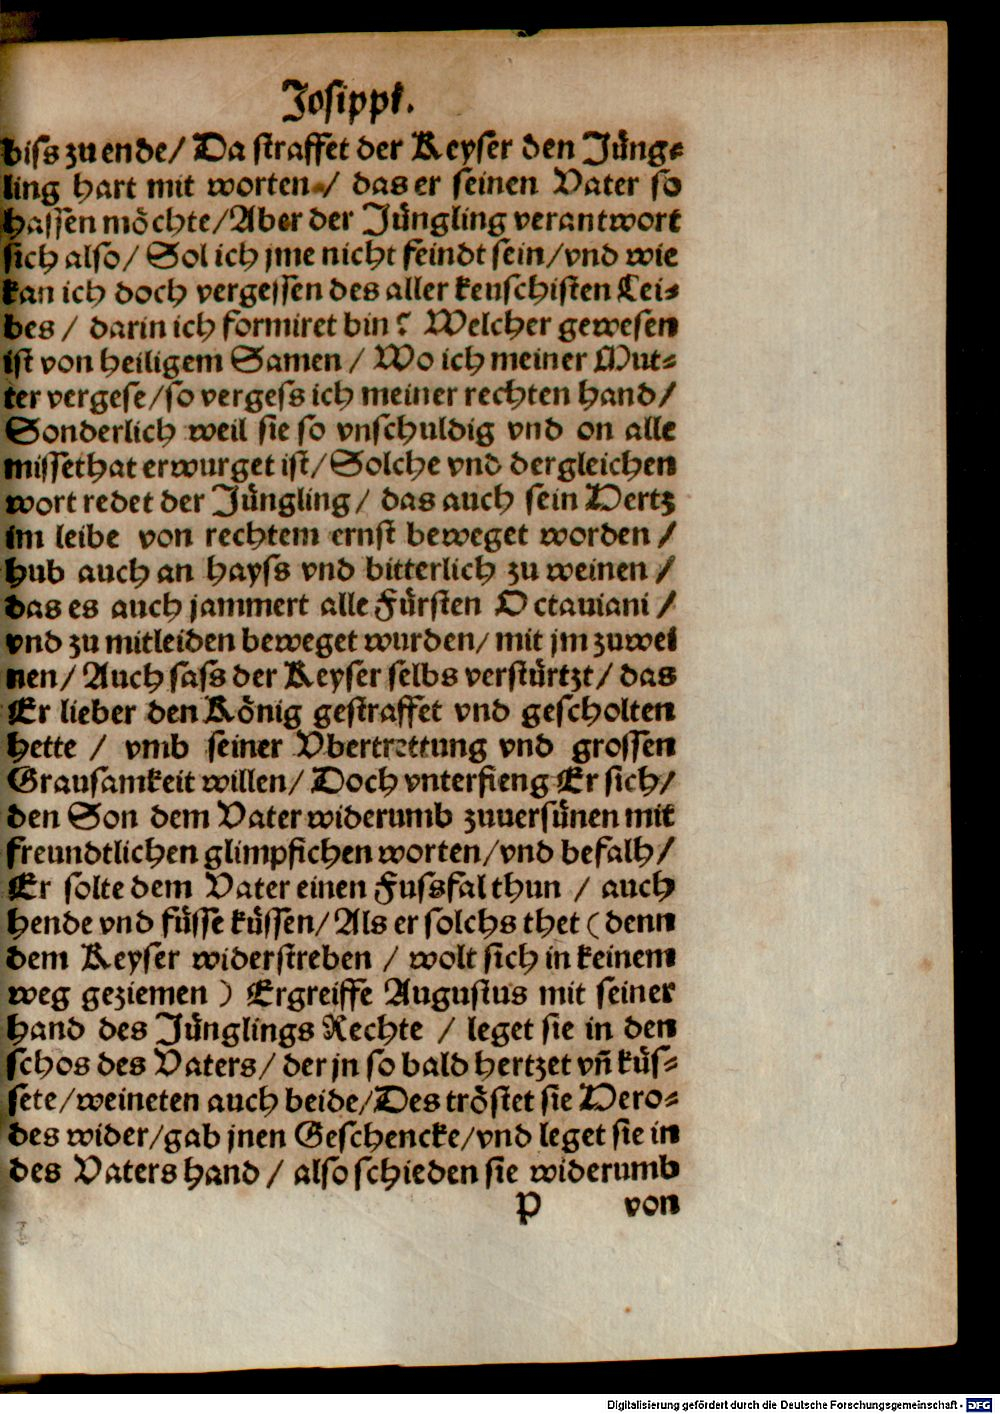 Josippk.
biss zu ende/ Da straffet der Keyser den Jüng⸗
ling hart mit worten / das er seinen Vater so
hassen möchte/Aber der Jüngling verantwort
sich also/ Sol ich jme nicht feindt sein/vnd wie
kan ich doch vergessen des aller keuschisten Lei⸗
bes / darin ich formiret bin? Welcher gewesen
ist von heiligem Samen / Wo ich meiner Mut⸗
ter vergese/so vergess ich meiner rechten hand/
Sonderlich weil sie so vnschuldig vnd on alle
missethat erwurget ist/Solche vnd dergleichen
wort redet der Jüngling/ das auch sein Hertz
im leibe von rechtem ernst beweget worden /
hub auch an hayss vnd bitterlich zu weinen /
das es auch jammert alle Fürsten Octauiani /
vnd zu mitleiden beweget wurden/ mit jm zuwei
nen/ Auch sass der Keyser selbs verstürtzt/ das
Er lieber den König gestraffet vnd gescholten
hette / vmb seiner Vbertrettung vnd grossen
Grausamkeit willen/ Doch vnterfieng Er sich/
den Son dem Vater widerumb zuuersünen mit
freundtlichen glimpfichen worten/vnd befalh/
Er solte dem Vater einen Fussfal thun / auch
hende vnd füsse küssen/Als er solchs thet (denn
dem Keyser widerstreben / wolt sich in keinem
weg geziemen ) Ergreiffe Augustus mit seiner
hand des Jünglings Rechte / leget sie in den
schos des Vaters/ der jn so bald hertzet vñ küs⸗
sete/weineten auch beide/Des tröstet sie Hero⸗
des wider/gab jnen Geschencke/vnd leget sie in
des Vaters hand / also schieden sie widerumb
P von
Digitalisierung gefördert durch die Deutsche Forschungsgemeinschaft - DFG